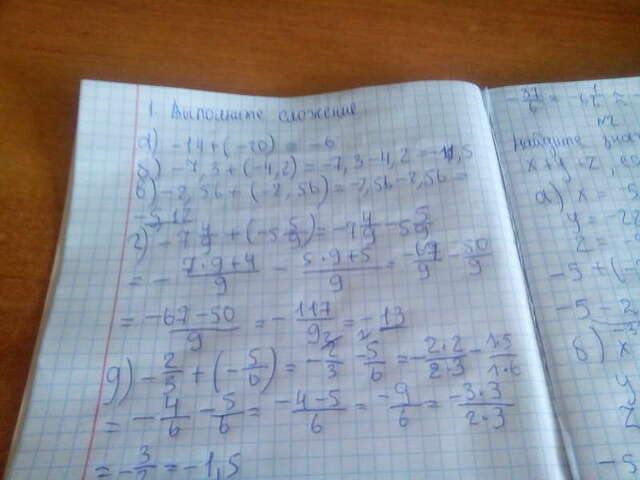 1. Выполните сложение
а) -14+(-20) = -6
б) -7,3+(-4,2) = -7,3-4,2 = -11,5
в) -2,56+(-2,56) = -2,56-2,56 =
-5,12
г) -7 4/9 + (-5 5/9) = -7 4/9 - 5 5/9
= - (7·9+4)/9 - (5·9+5)/9 = -67/9 - 50/9
= (-67-50)/9 = -117/9 = -13
д) -2/3 + (-5/6) = -2/3 - 5/6 = -2·2/2·3 - 1·5/1·6
= -4/6 - 5/6 = (-4-5)/6 = -9/6 = -3·3/2·3
= -3/2 = -1,5
-37/6 = -6 1/6
№2
Найдите
x+y+z,
а) x = -5
y = -2
z = -
-5+(-2
-5-2
б) x
y
z
-5